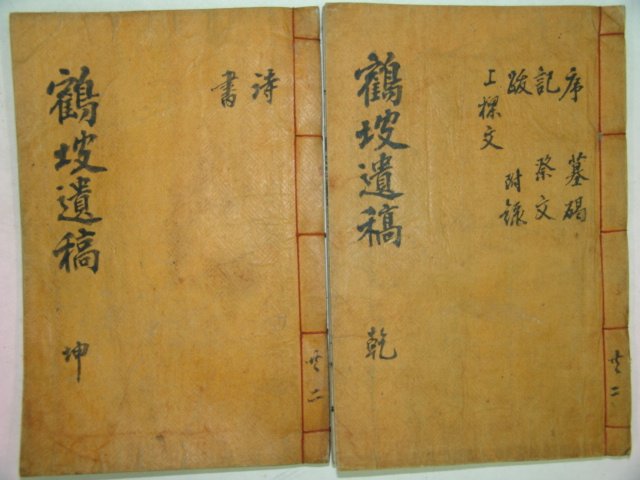 詩
書
鶴坡遺稿 坤
共二
序 墓碣
記 祭文
跋 附錄
上樑文
鶴坡遺稿 乾
共二